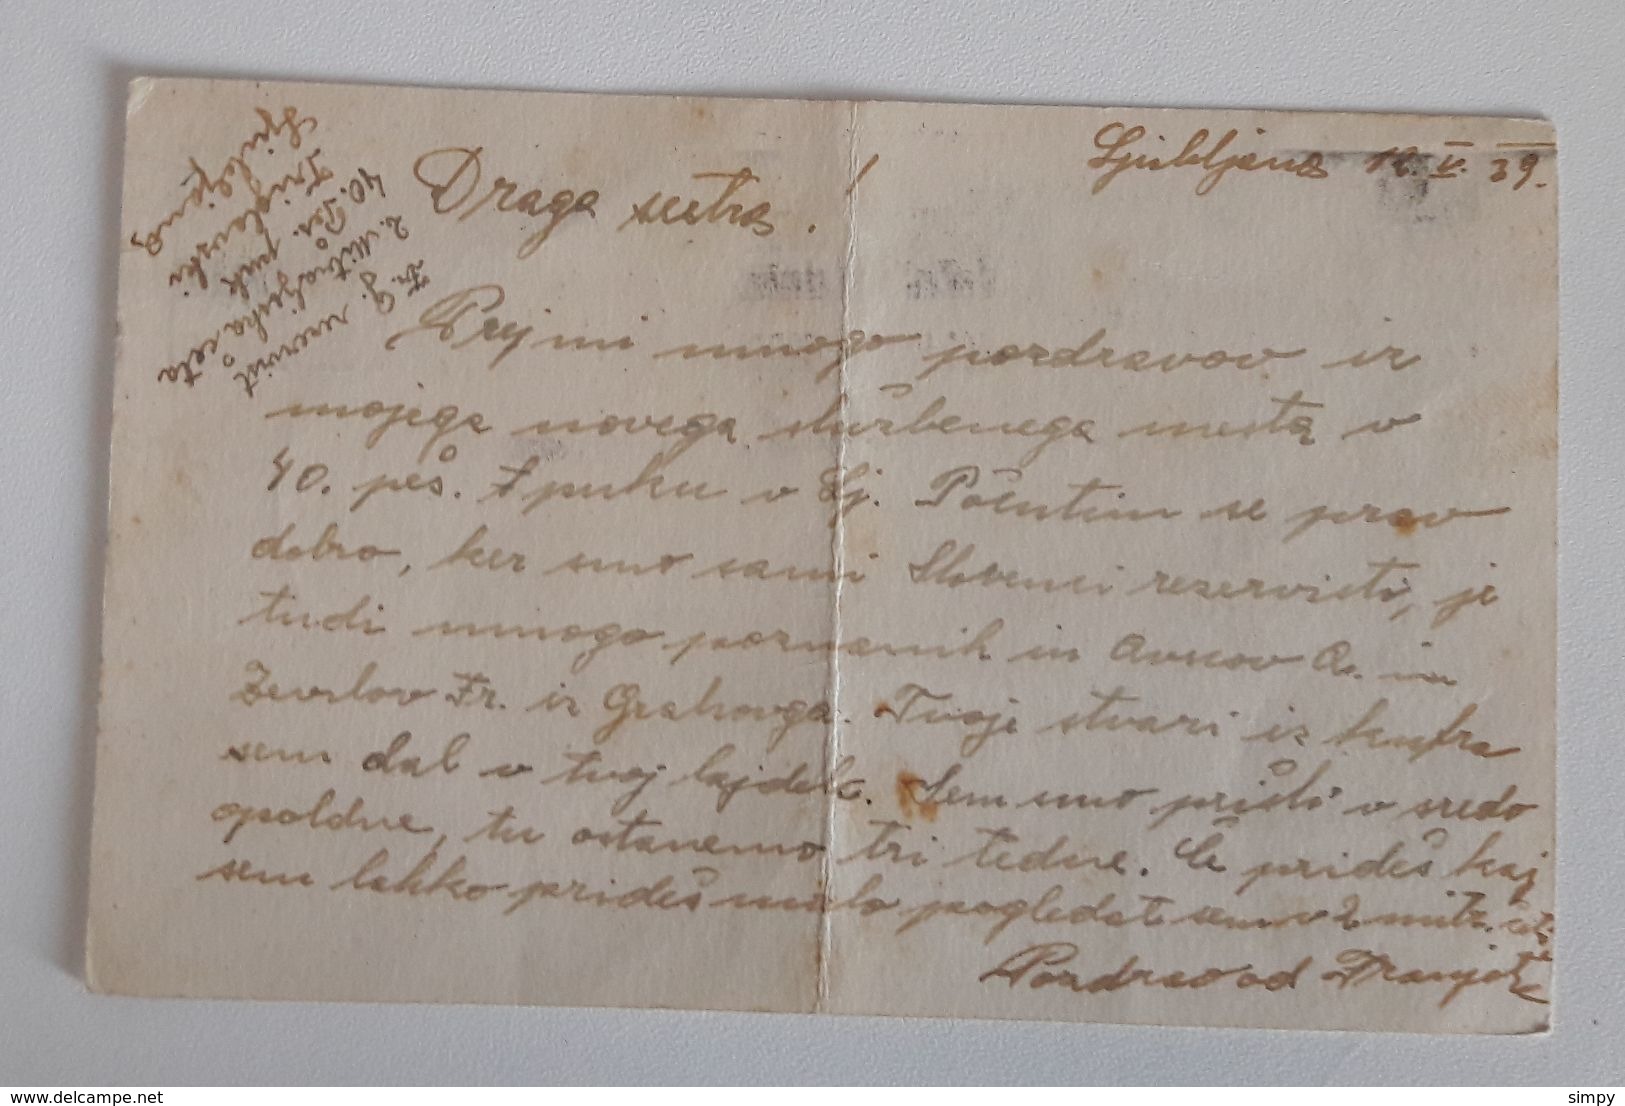 Ljubljana 12. V. 39.
Draga sestra!
Prejmi mnogo pozdravov iz
mojega novega službenega mesta v
40. peš. puku v Lj. Počutim se prav
dobro, ker smo sami Slovenci rezervisti, je
tudi mnogo poznanih in A. in
Fr. iz Grahovga. Tvoje stvari iz kufra
sem dal v tvoj lajdelc. Sem smo prišli v sredo
opoldne, tu ostanemo tri tedne. Če prideš kaj
sem lahko prideš malo pogledat sem v 2 mitr. četi
Pozdrav od
Fr. G. rezervist
2. Mitraljeska četa
40. Peš. puk
Triglavski
Ljubljana
simpy